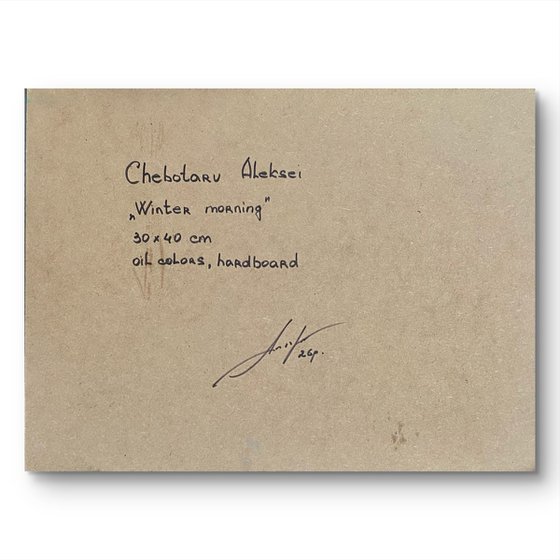 Chebotaru Aleksei
„Winter morning"
30x40 cm
oil colors, hardboard
26г.